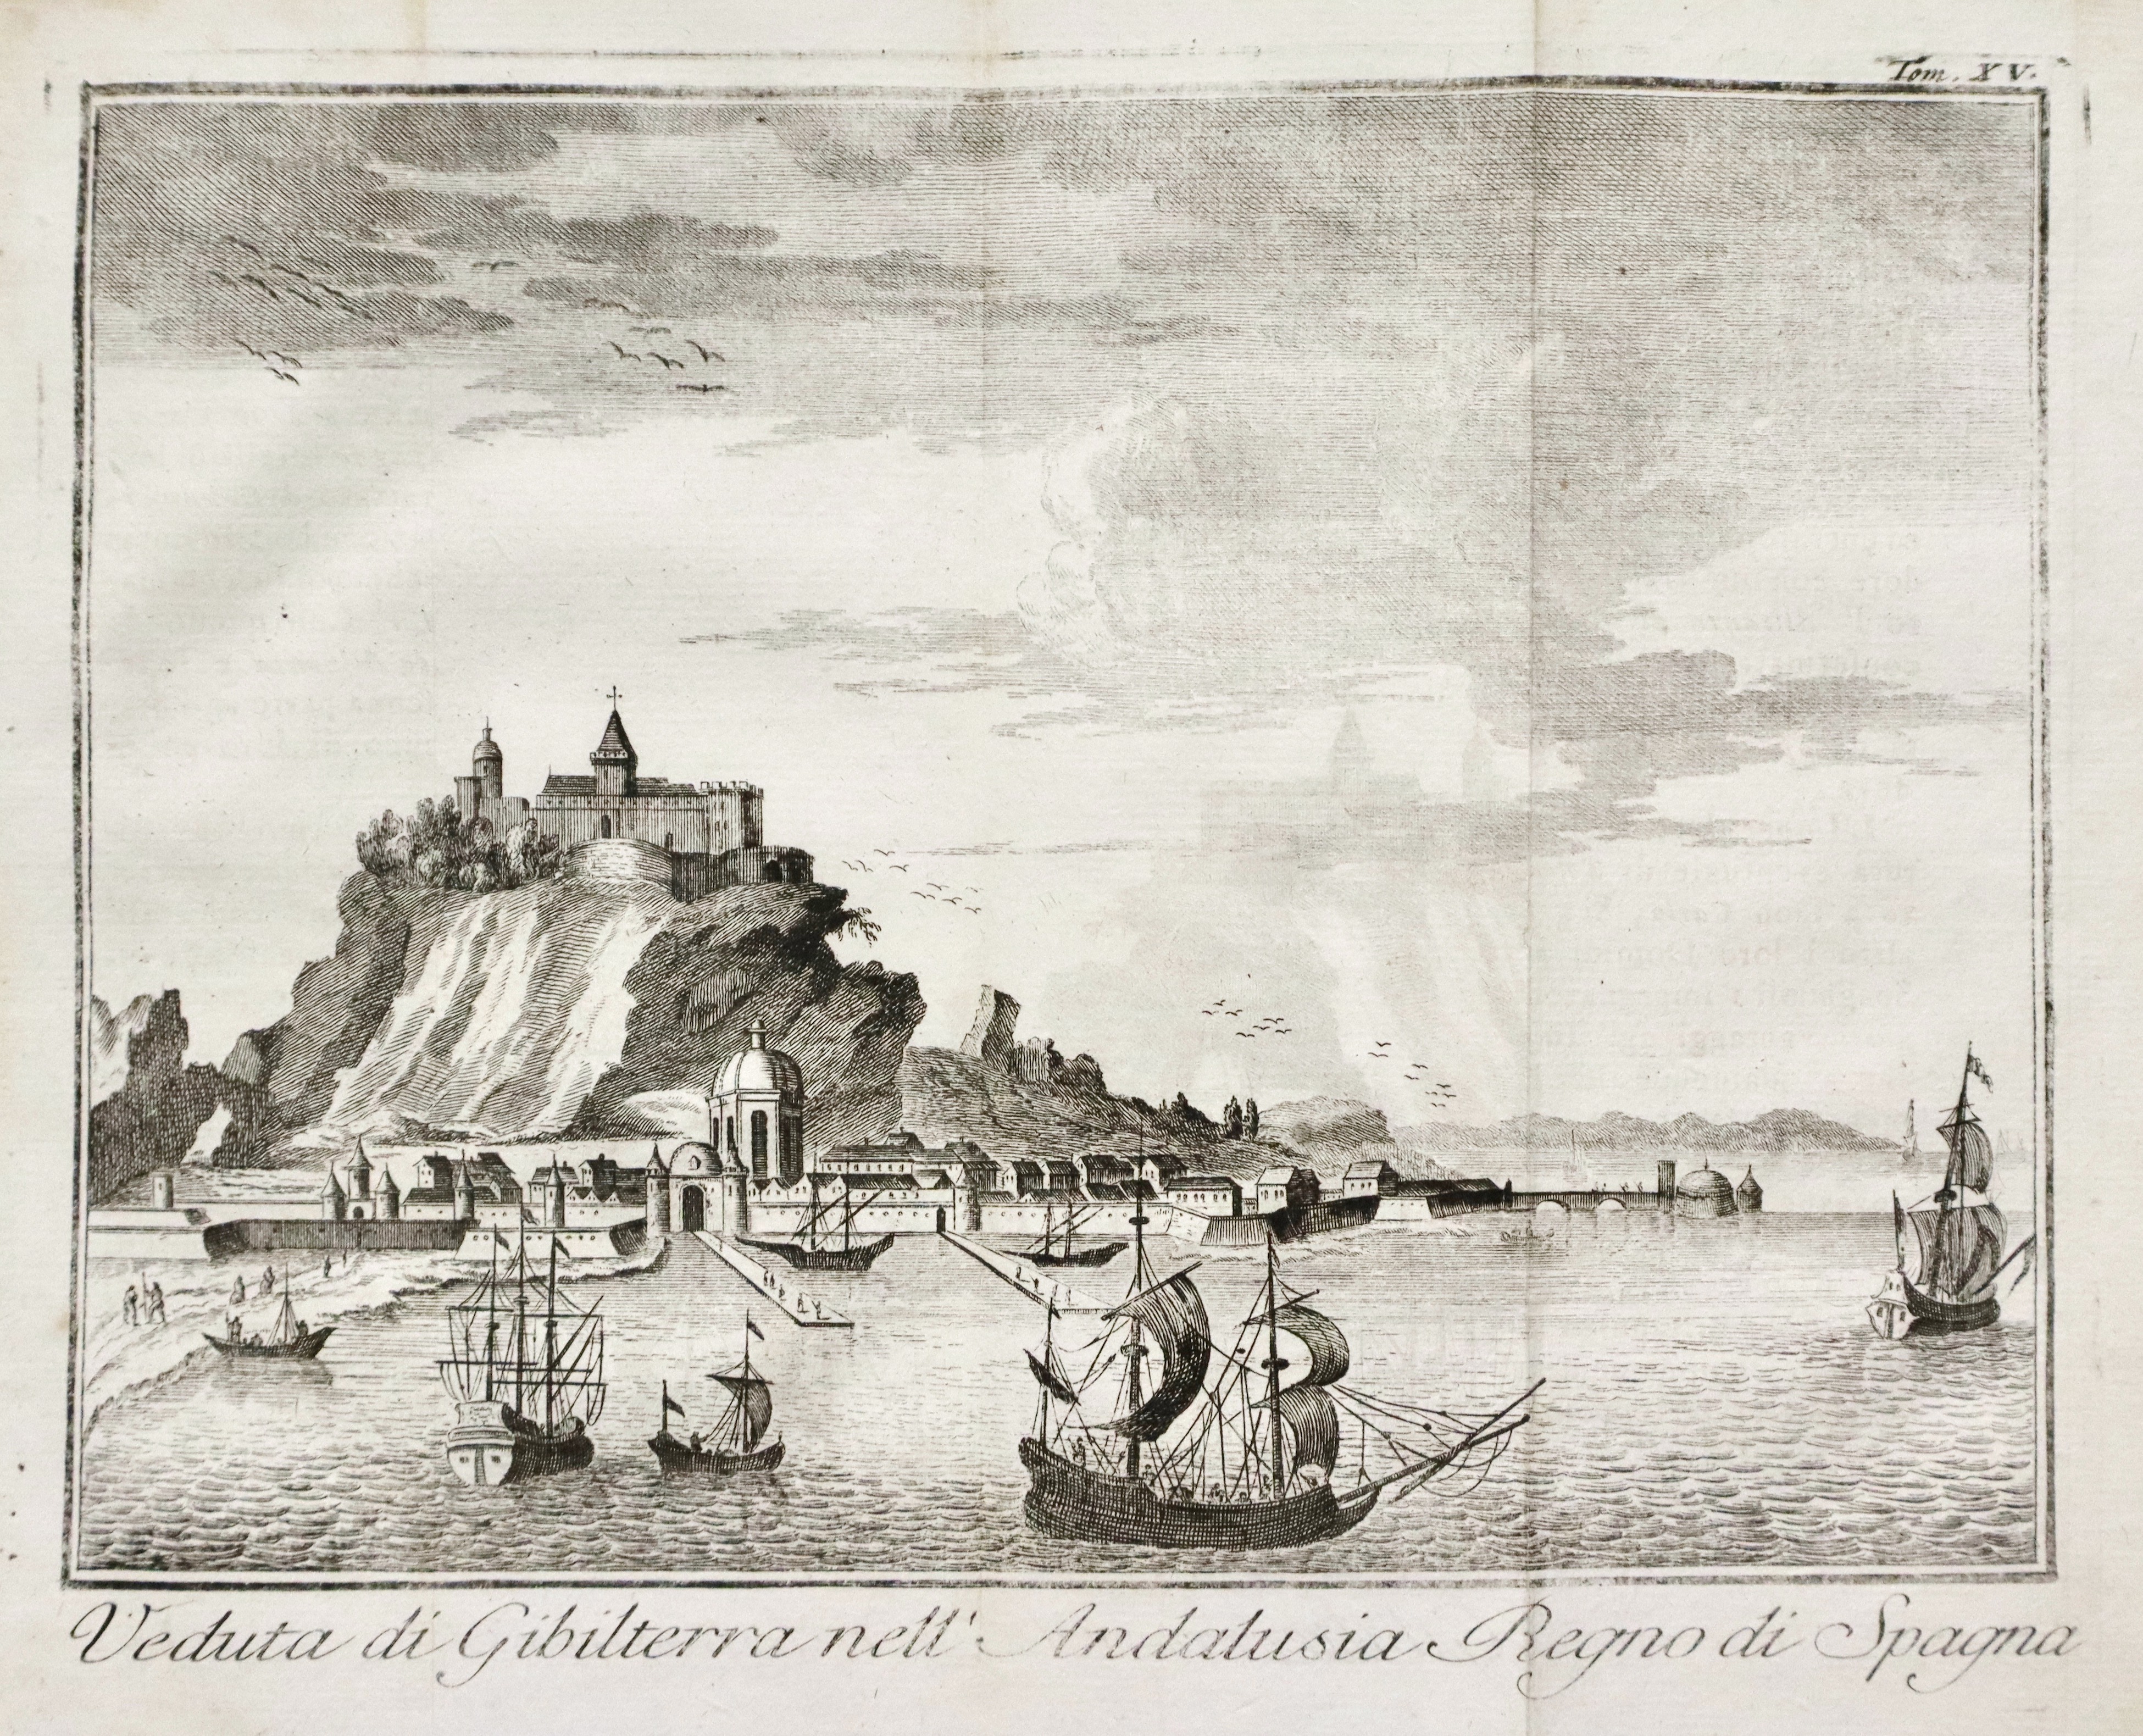 Tom. XV.
Veduta di Gibilterra nell' Andalusia Regno di Spagna